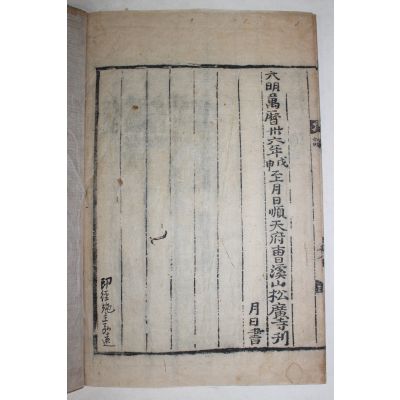 大明萬曆卅六年戊申至月日順天府曺溪山松廣寺刊
月日書
印経施主